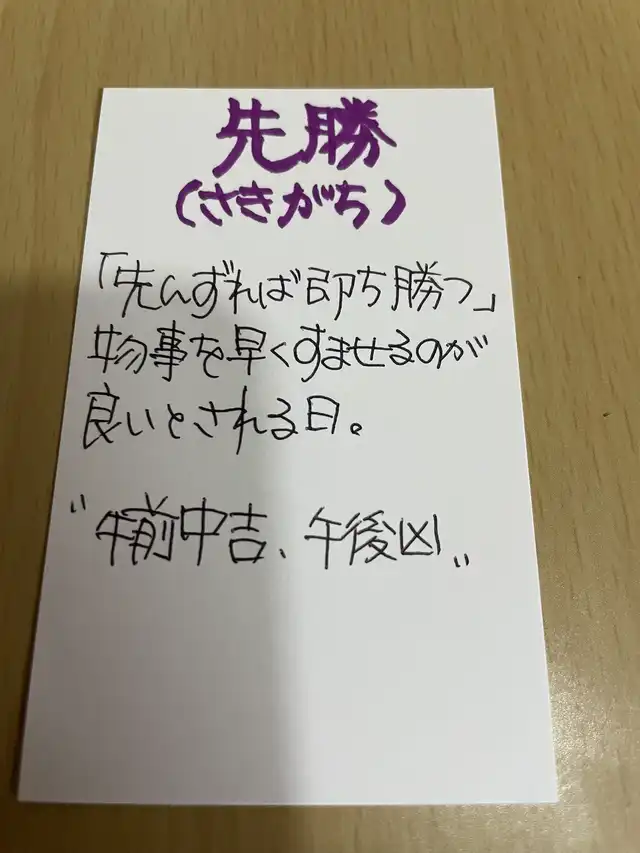 先勝
(さきがち)
「先んずれば即ち勝つ」
物事を早くすませるのが
良いとされる日。
"午前中吉、午後凶"